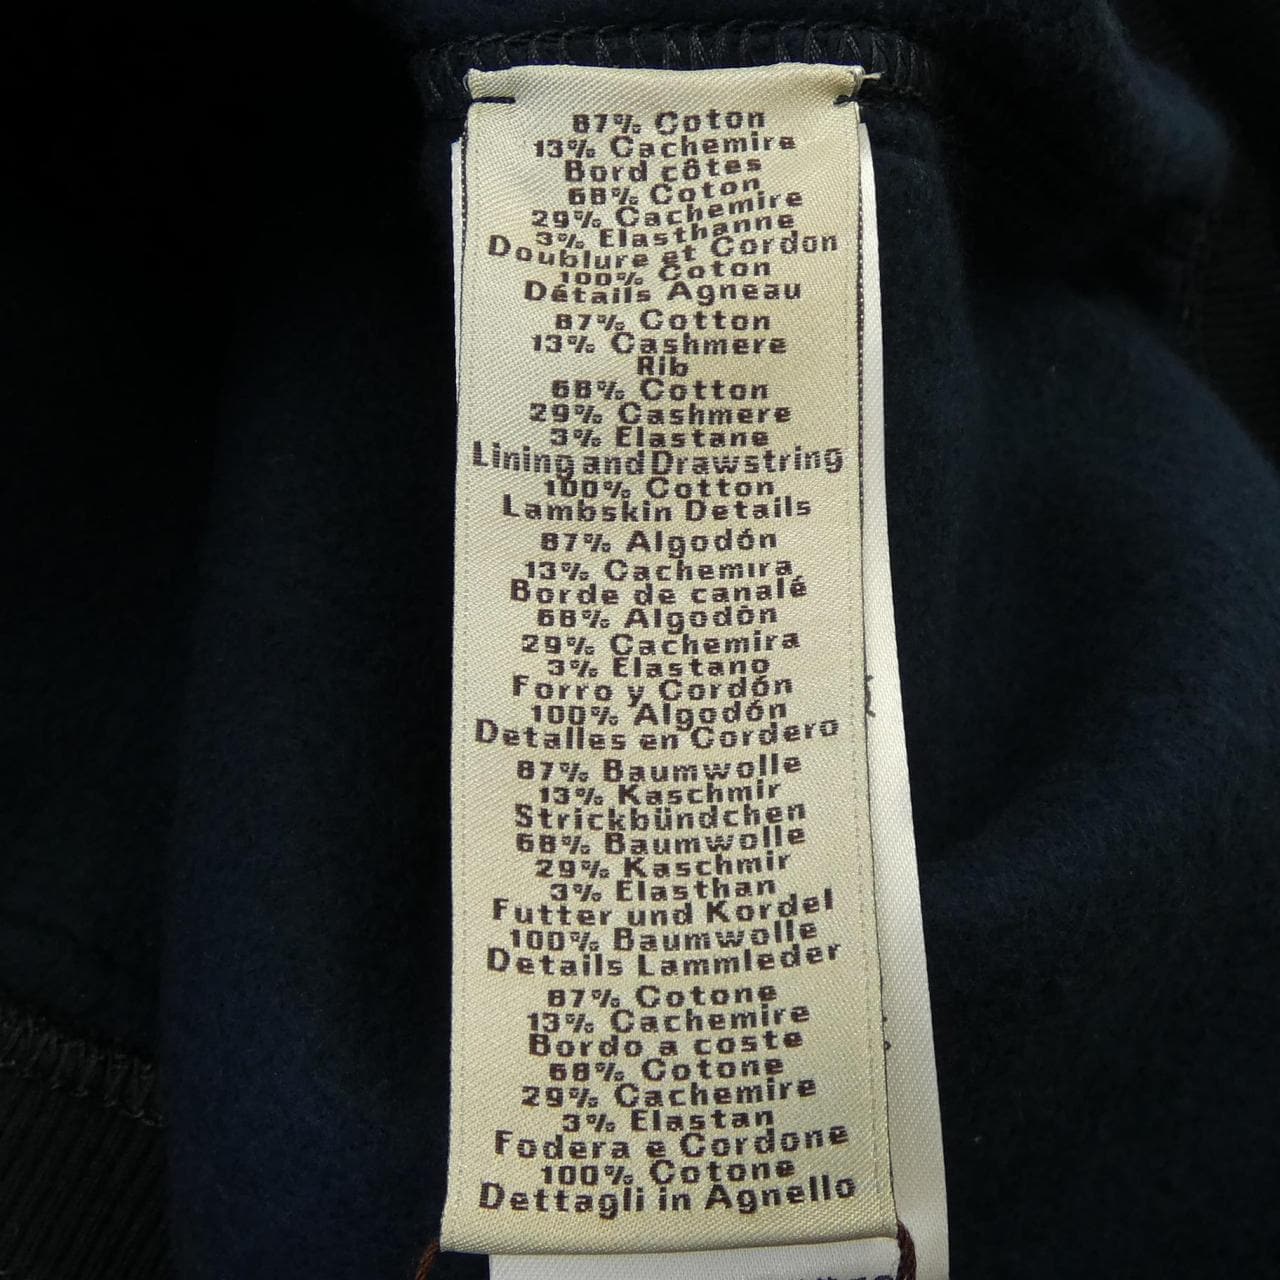 87% Coton
13% Cachemire
Bord côtes
68% Coton
29% Cachemire
3% Elasthanne
Doublure et Cordon
100% Coton
Détails Agneau
87% Cotton
13% Cashmere
Rib
68% Cotton
29% Cashmere
3% Elastane
Lining and Drawstring
100% Cotton
Lambskin Details
87% Algodón
13% Cachemira
Borde de canalé
68% Algodón
29% Cachemira
3% Elastano
Forro y Cordón
100% Algodón
Detalles en Cordero
87% Baumwolle
13% Kaschmir
Strickbündchen
68% Baumwolle
29% Kaschmir
3% Elasthan
Futter und Kordel
100% Baumwolle
Details Lammleder
87% Cotone
13% Cachemire
Bordo a coste
68% Cotone
29% Cachemire
3% Elastan
Fodera e Cordone
100% Cotone
Dettagli in Agnello